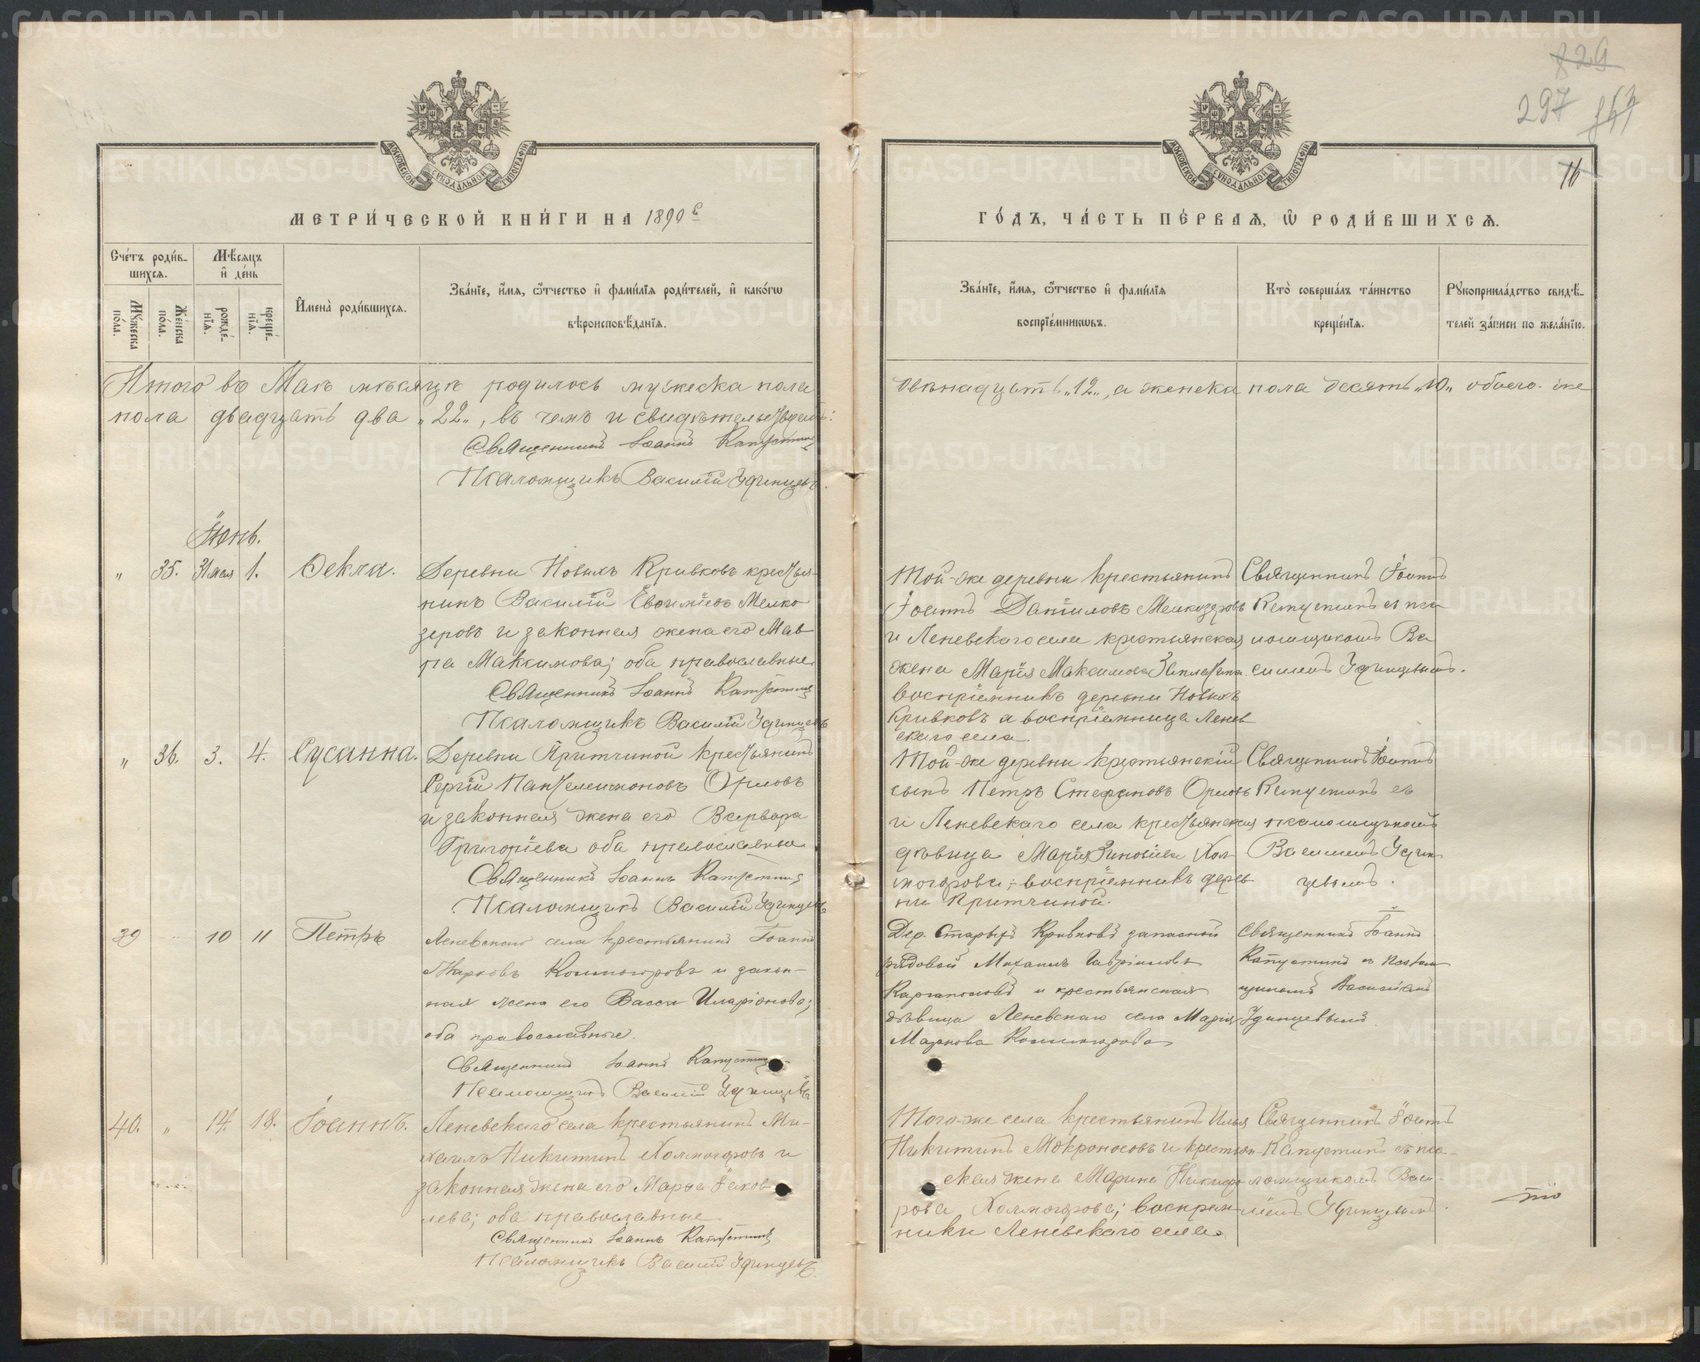 829
297
16
МЕТРИ́ЧЕСКОЙ КНИ́ГИ НА 1890 г
ГО́ДЪ, ЧА́СТЬ ПЕ́РВАЯ, Ѡ РОДИ́ВШИХСЯ.
Сче́тъ роди́в-
шихся.
Мѣ́сяцъ
и де́нь
Му́жеска по́ла.
Же́нска по́ла.
рожде́-
нїя.
креще́-
нїя.
И́мена̀ роди́вшихся.
Зва́нїе, и́мя, ѻ́тчество и фами́лїя роди́телей, и како́гѡ
вѣроисповѣ́данїя.
Зва́нїе, и́мя, ѻ́тчество и фами́лїя
воспрїе́мниковъ.
Кто̀ соверша́лъ та́инство
креще́нїя.
Рукоприкла́дство свидѣ́-
телей за́писи по жела́нїю.
Итого въ Маѣ мѣсяцѣ родилось мужеска пола двѣнадцать „12„, а женска пола десять „10„ обоего-же
пола двадцать два „22„, въ чемъ и свидѣтельствуемъ:
Священникъ Іоаннъ Капустинъ
Псаломщикъ Василій Удинцевъ.
Іюнь.
„ 35. 31 мая 1. Ѳекла.
Деревни Новыхъ Кривковъ крестья-
нинъ Василій Евѳимїевъ Мелко
зеровъ и законная жена его Мав-
ра Максимова; оба православные
Священникъ Іоаннъ Капустинъ
Псаломщикъ Василій Удинцевъ
Той-же деревни крестьянинъ
Іоаннъ Данїиловъ Мелкозеровъ
и Леневскаго села крестьянская
жена Марїя Максимова
воспрїемникъ деревни Новыхъ
Кривковъ а воспрїемница Ленев
скаго села.
Священникъ Іоаннъ
Капустинъ съ пса
ломщикомъ Ва
силіемъ Удинцевымъ.
„ 36. 3. 4. Сусанна.
Деревни Притчиной крестьянинъ
Сергїй Пантелеимоновъ Орловъ
и законная жена его Варвара
Григорїева оба православные
Священникъ Іоаннъ Капустинъ
Псаломщикъ Василій Удинцевъ
Той-же деревни крестьянскїй
сынъ Петръ Стефановъ Орловъ
и Леневскаго села крестьянская
дѣвица Марїя Зиновїева Кол-
могорова; воспрїемникъ дерев
ни Притчиной.
Священникъ Іоаннъ
Капустинъ съ
псаломщикомъ
Василіемъ Удин
цевымъ.
39 10 11 Петръ
Леневскаго села крестьянинъ Іоаннъ
Марковъ Колмогоровъ и закон-
ная жена его Васса Иларіонова;
оба православные.
Священникъ Іоаннъ Капустинъ
Псаломщикъ Василій Удинцевъ
Дер. Старыхъ Кривковъ запасной
рядовой Михаилъ Гавріиловъ
Каргаполовъ и крестьянская
дѣвица Леневскаго села Марія
Маркова Колмогорова
Священникъ Іоаннъ
Капустинъ съ псалом
щикомъ Василіемъ
Удинцевымъ
40. „ 14. 18. Іоаннъ.
Леневскаго села крестьянинъ Ми-
хаилъ Никитинъ Колмогоровъ и
законная жена его Марѳа Іаков
лева; оба православные
Священникъ Іоаннъ Капустинъ
Псаломщикъ Василій Удинцевъ
Того-же села крестьянинъ Илья
Никитинъ Мокроносовъ и крестьян-
ская жена Марина Никифо
рова Колмогорова; воспрїем
ники Леневскаго села.
Священникъ Іоаннъ
Капустинъ съ пса-
ломщикомъ Васи-
ліемъ Удинцевымъ.